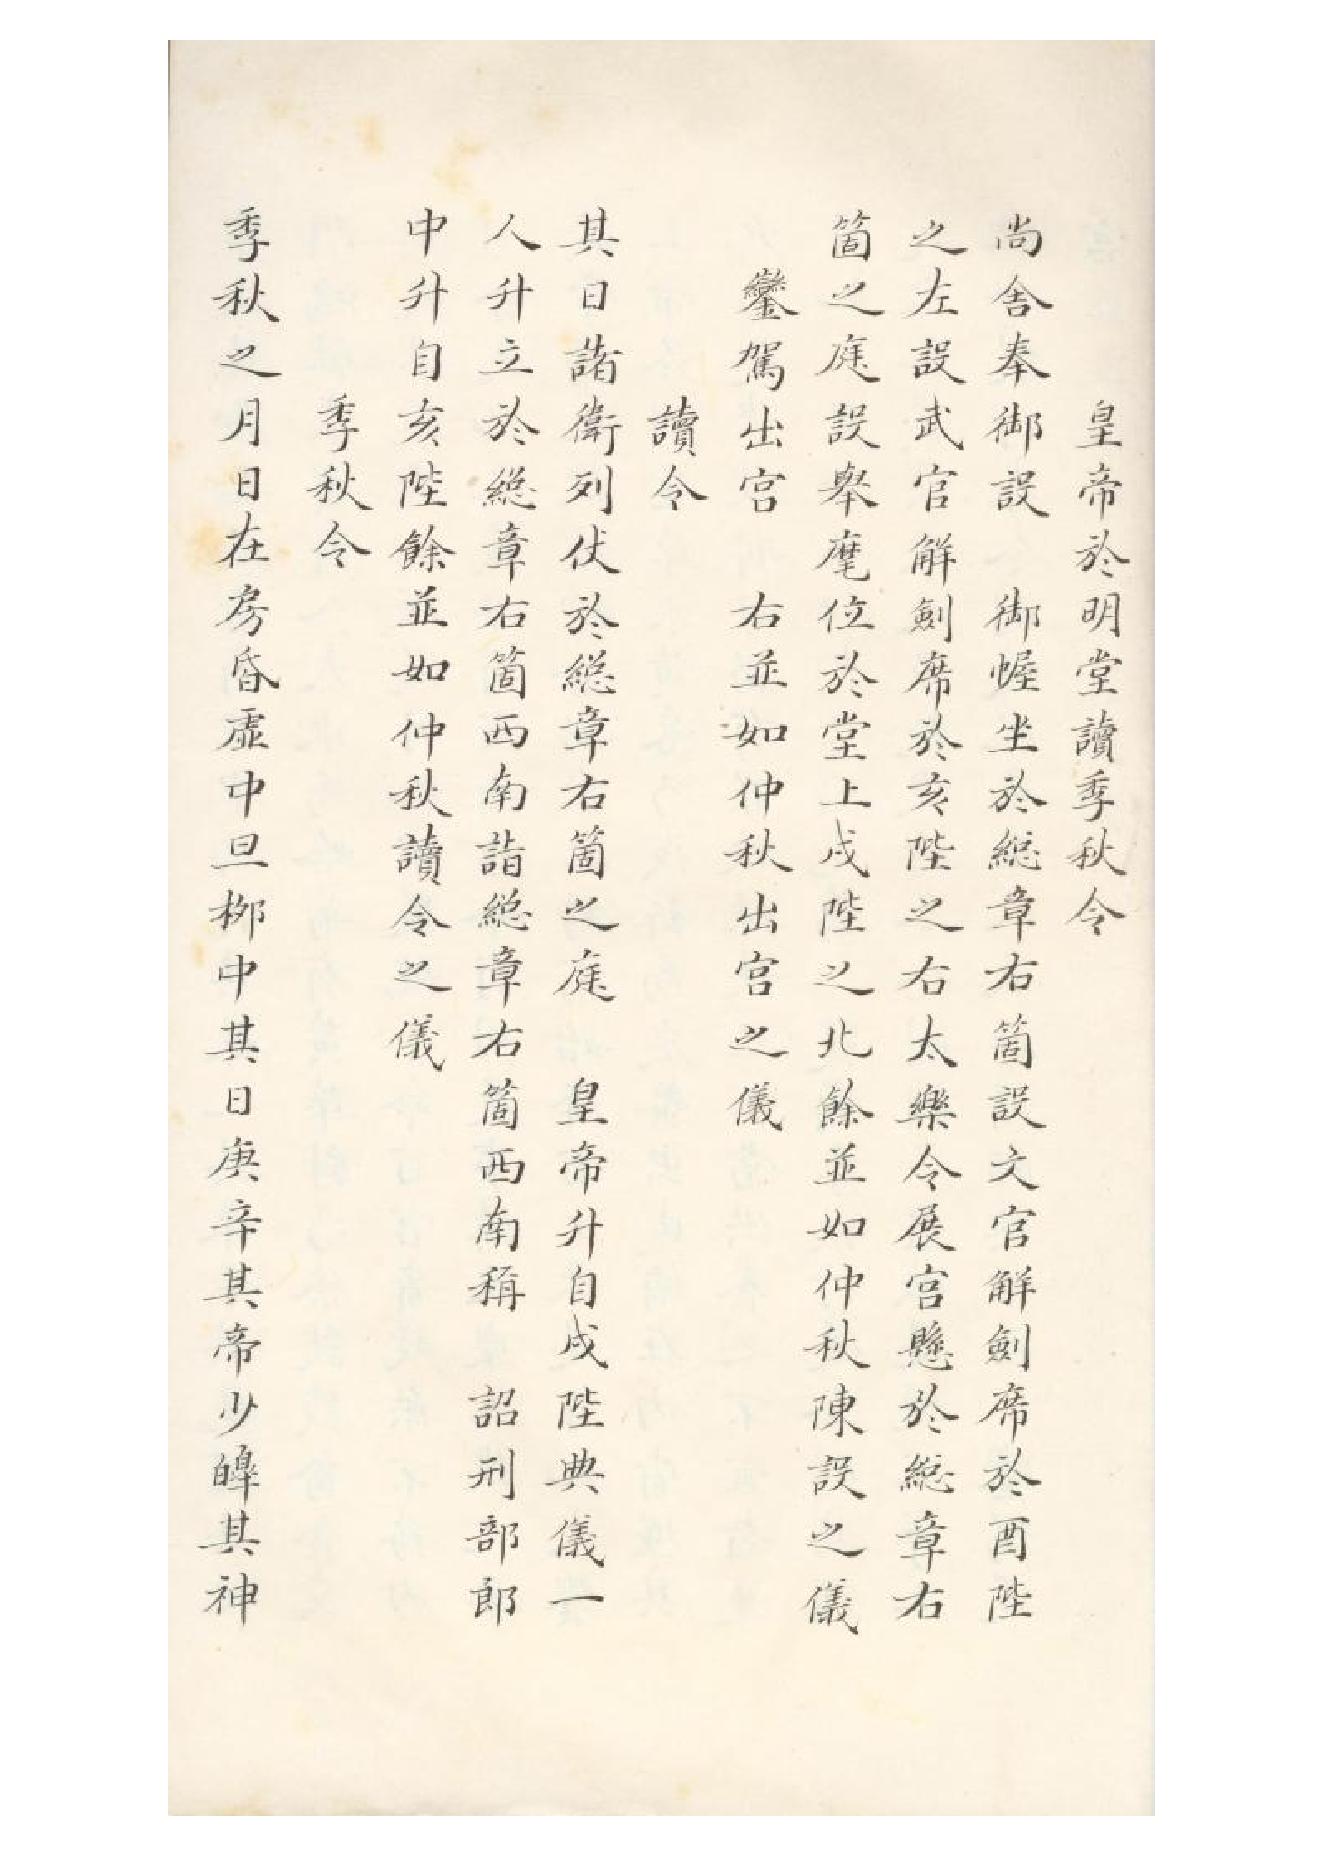 皇帝於明堂讀季秋令
尚舍奉御設　御幄坐於緫章右箇設文官解劍席於酉陛
之左設武官解劍席於亥陛之右太樂令展宮懸於緫章右
箇之庭設舉麾位於堂上戌陛之北餘並如仲秋陳設之儀
鑾駕出宮　右並如仲秋出宮之儀
讀令
其日諸衛列仗於緫章右箇之庭　皇帝升自戌陛典儀一
人升立於緫章右箇西南詣緫章右箇西南稱　詔刑部郎
中升自亥陛餘並如仲秋讀令之儀
季秋令
季秋之月日在房昏虛中旦栁中其日庚辛其帝少皞其神